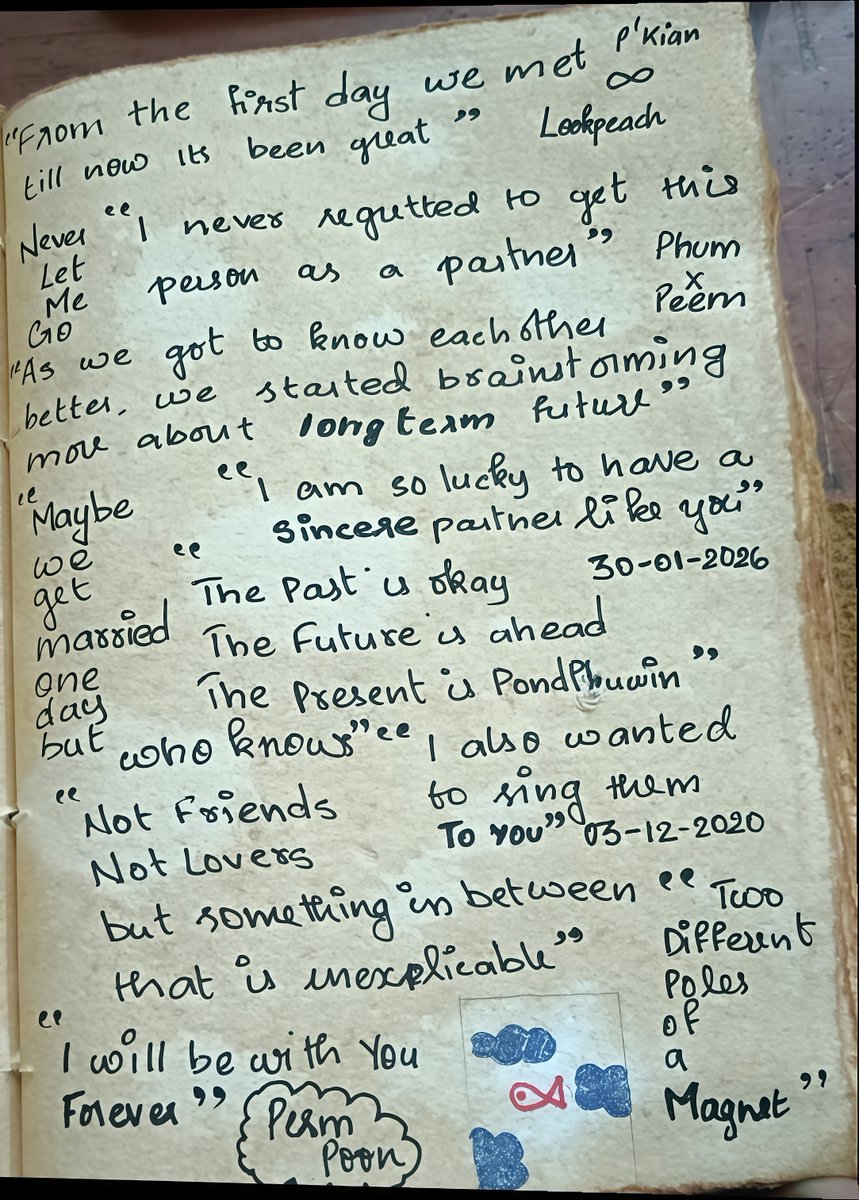 "From the first day we met P'Kian
∞
till now its been great" Lookpeach
Never
Let
Me
Go
"I never regutted to get this
person as a partner" Phum
x
Peem
"As we got to know each other
better, we started brainstorming
more about long term future"
"I am so lucky to have a
sincere partner like you"
30-01-2026
"Maybe
we
get
married
one
day
but who knows"
"The Past is okay
The Future is ahead
The Present is PondPhuwin"
"I also wanted
to sing them
To you" 03-12-2020
"Not Friends
Not Lovers
but something in between
that is inexplicable"
"Two
Different
Poles
of
a
Magnet"
"I will be with You
Forever"
Perm
Poon